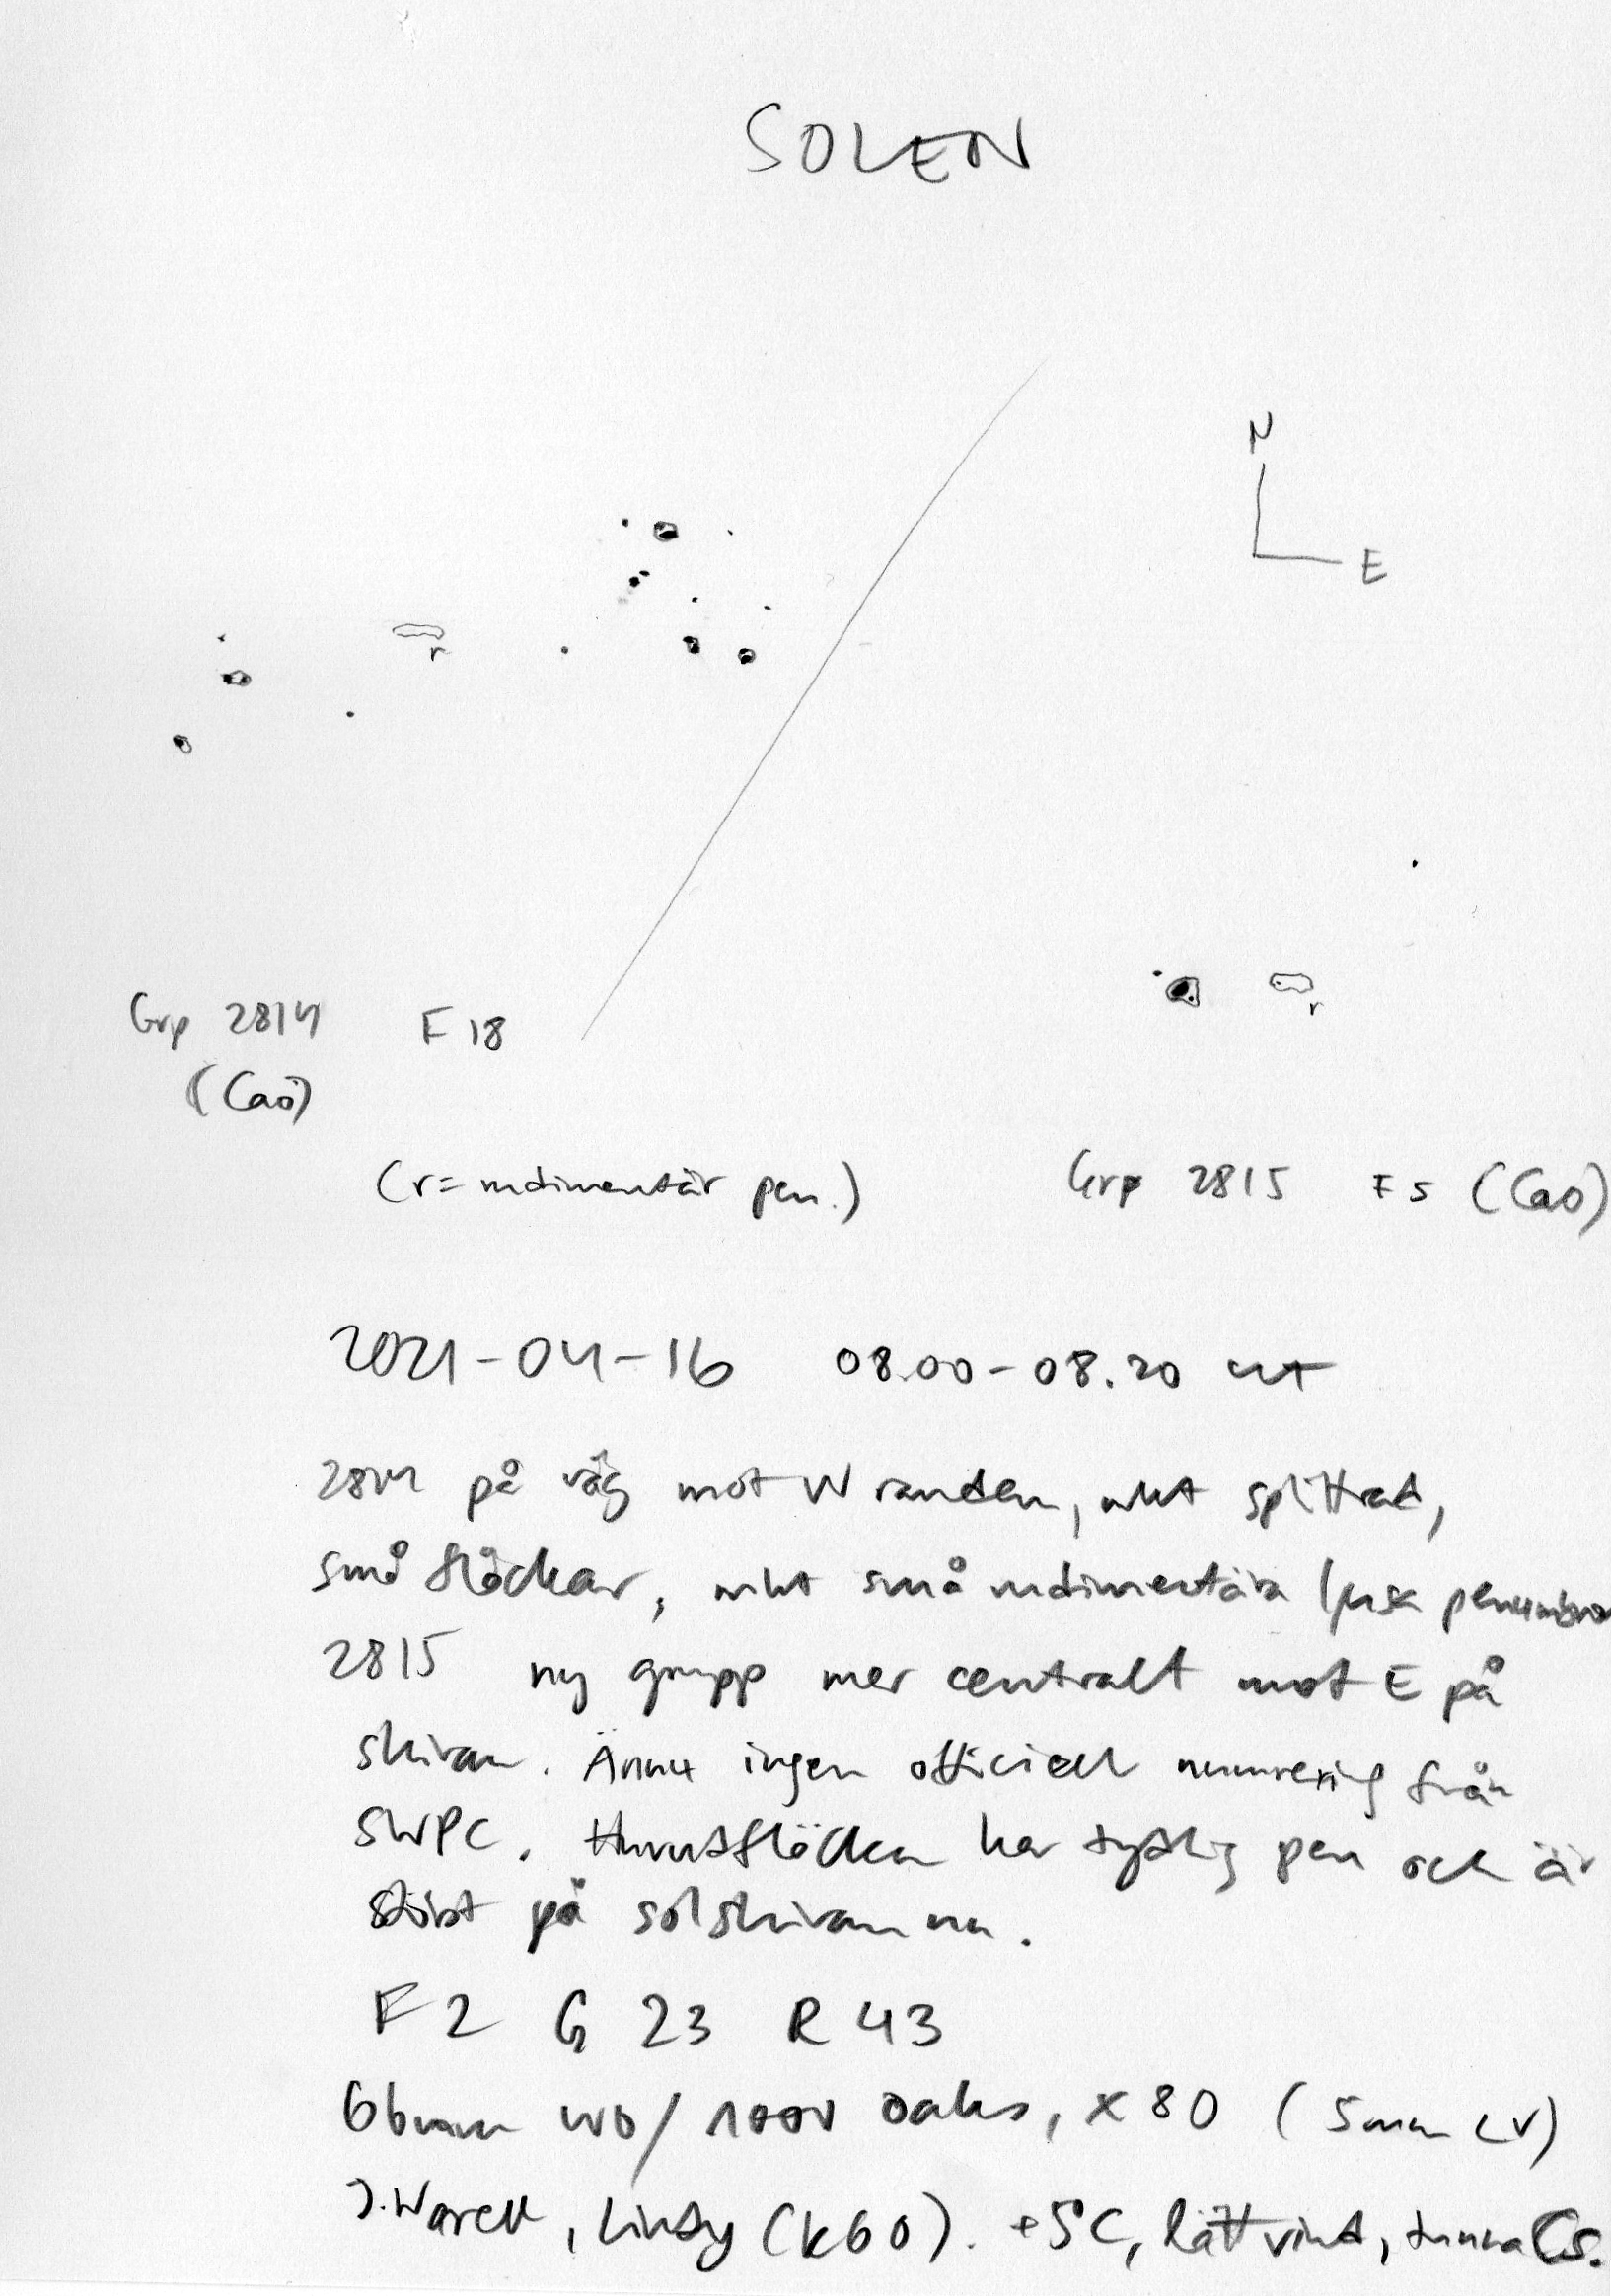 SOLEN
N
E
r
r
Grp 2814 F 18
(Cao)
(r= rudimentär pen.)
Grp 2815 F 5 (Cao)
2021-04-16 08.00-08.20 UT
2814 på väg mot W randen, mkt splittrad,
små fläckar, mkt små rudimentära ljusa penumbror
2815 ny grupp mer centralt mot E på
skivan. Ännu ingen officiell numrering från
SWPC. Huvudfläcken har tydlig pen och är
störst på solskivan nu.
F 2 G 23 R 43
66mm WO/ , x 80 (5mm LV)
J. Warell, Lindby (K60). +5°C, lätt vind, tunna Cs.